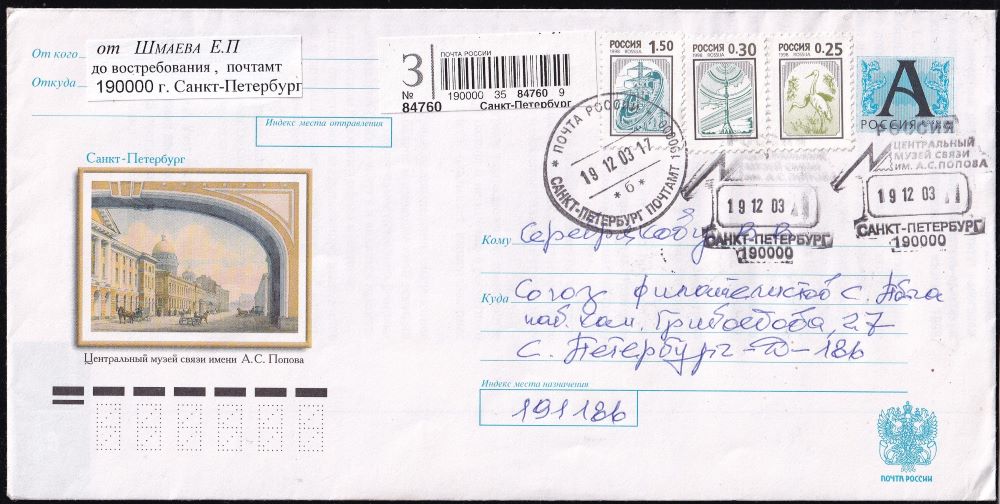 От кого от Шмаева Е.П
Откуда до востребования , почтамт
190000 г. Санкт-Петербург
Индекс места отправления
ПОЧТА РОССИИ
З
№
84760
190000 35 84760 9
Санкт-Петербург
РОССИЯ 1.50
1998 ROSSIJA
РОССИЯ 0.30
1998 ROSSIJA
РОССИЯ 0.25
1998 ROSSIJA
А
РОССИЯ
ПОЧТА РОССИИ
19 12 03 17
* б *
САНКТ-ПЕТЕРБУРГ ПОЧТАМТ
19 12 03
САНКТ-ПЕТЕРБУРГ
190000
РОССИЯ
ЦЕНТРАЛЬНЫЙ
МУЗЕЙ СВЯЗИ
ИМ. А.С. ПОПОВА
19 12 03
САНКТ-ПЕТЕРБУРГ
190000
Санкт-Петербург
Центральный музей связи имени А.С. Попова
Кому
Куда Союз филателистов С.
наб. кан. Грибоедова, 27
С. Петербург-Д-186
Индекс места назначения
191186
ПОЧТА РОССИИ